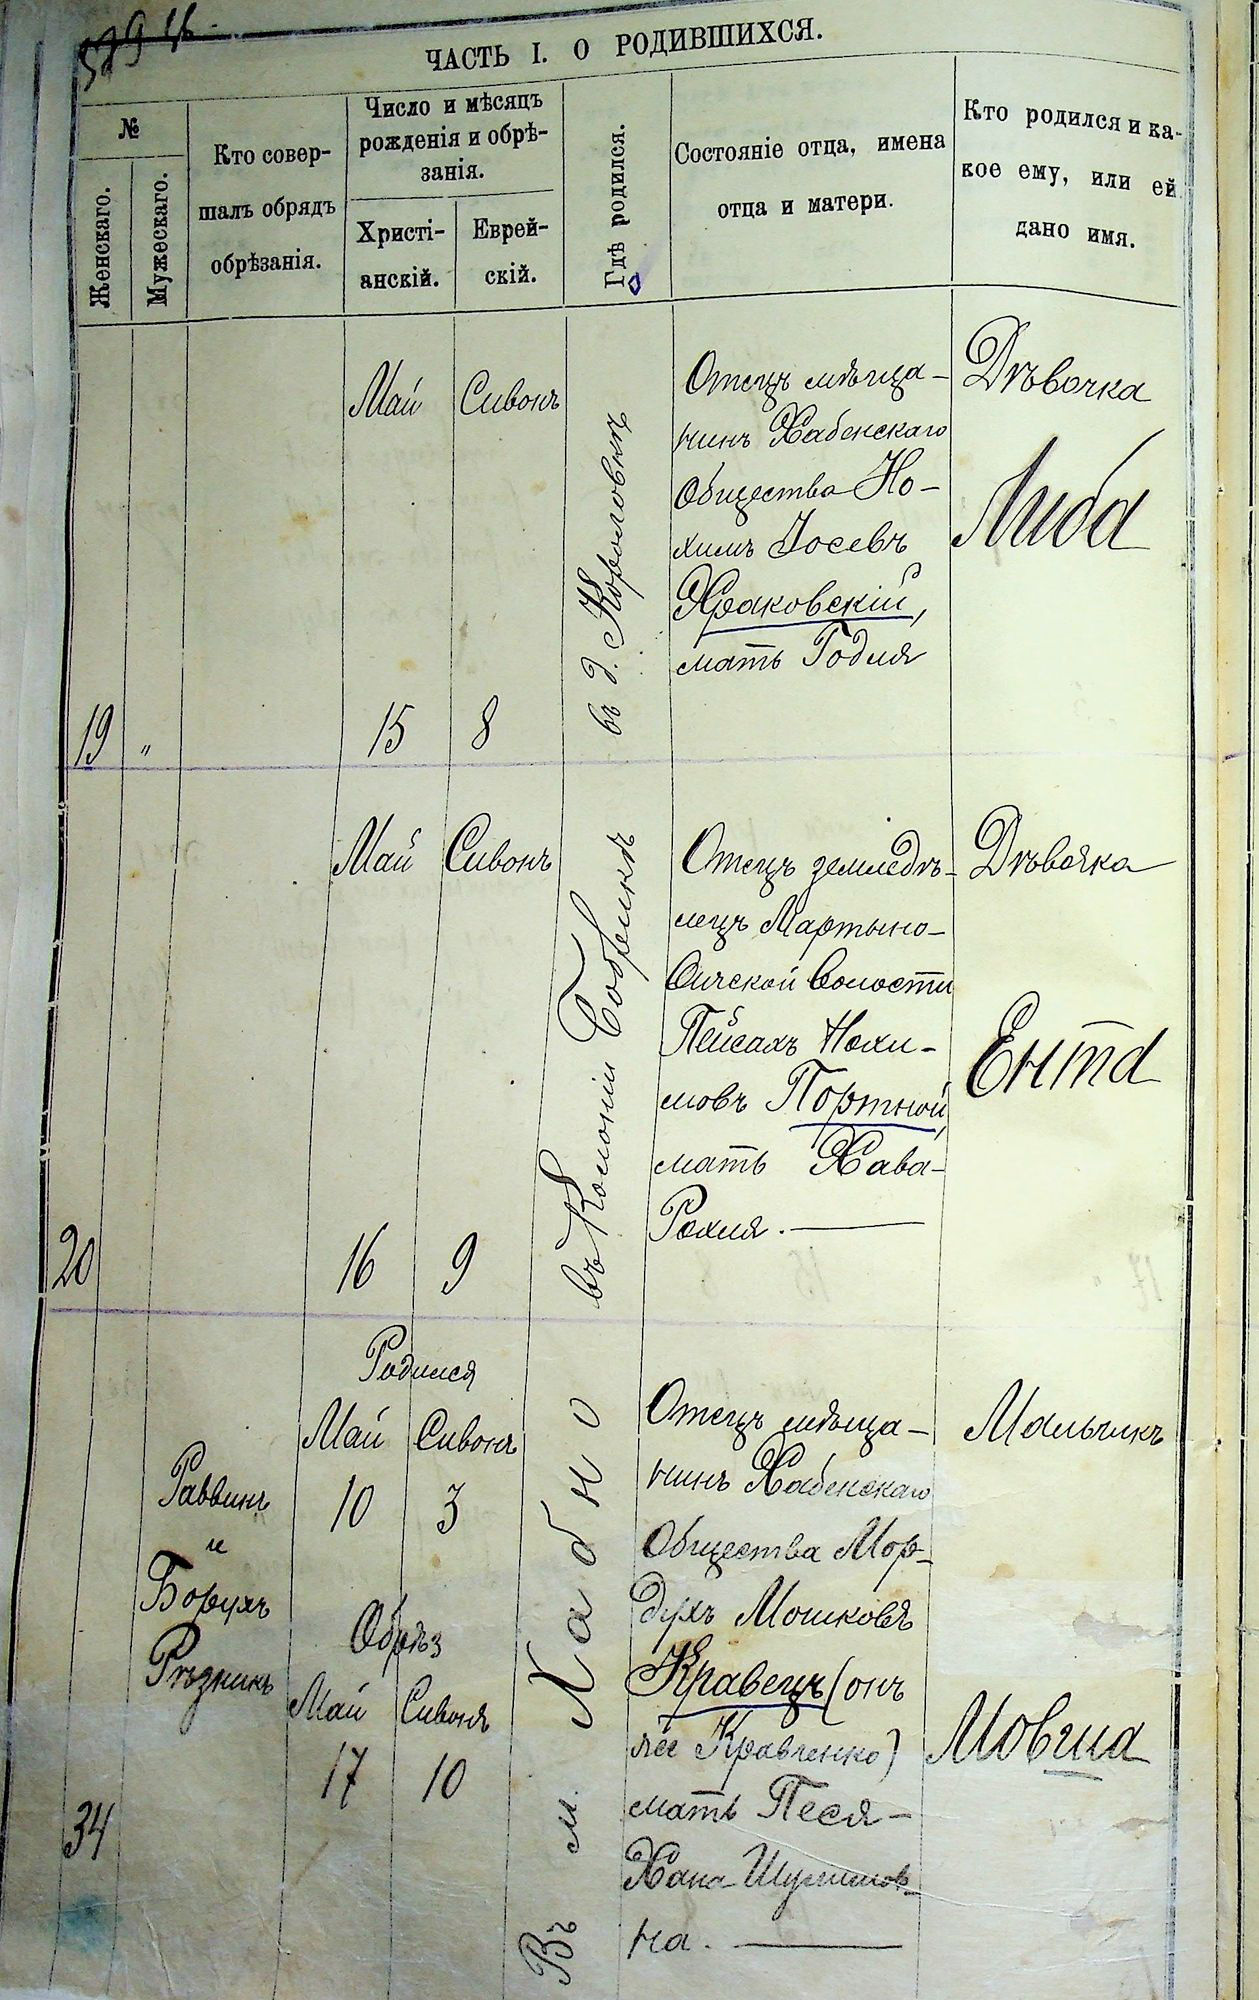 ЧАСТЬ I. О РОДИВШИХСЯ.
№
Женскаго.
Мужескаго.
Кто совер-
шалъ обрядъ
обрѣзанія.
Число и мѣсяцъ
рожденія и обрѣ-
занія.
Христі-
анскій.
Еврей-
скій.
Гдѣ родился.
Состояніе отца, имена
отца и матери.
Кто родился и ка-
кое ему, или ей
дано имя.
19
"
Май
15
Сивонъ
8
въ д.
Отецъ мѣща-
нинъ Хабенскаго
Общества Но-
химъ Іосевъ
Храковскій,
мать Годля
Дѣвочка
Либа
20
Май
16
Сивонъ
9
въ Колоніи
Отецъ земледѣ-
лецъ Мартыно-
вичской волости
Пейсахъ Нохи-
мовъ Портной,
мать Хава-
Рохля.
Дѣвочка
Ента
34
Раввинъ
и
Борухъ
Рѣзникъ
Родился
Май Сивонъ
10 3
Обрѣз
Май Сивонъ
17 10
Въ м. Хабно
Отецъ мѣща-
нинъ Хабенскаго
Общества Мор-
духъ Мошковъ
Кравецъ (онъ
же Кравченко)
мать Песя-
Хана
на.
Мальчикъ
Мовша